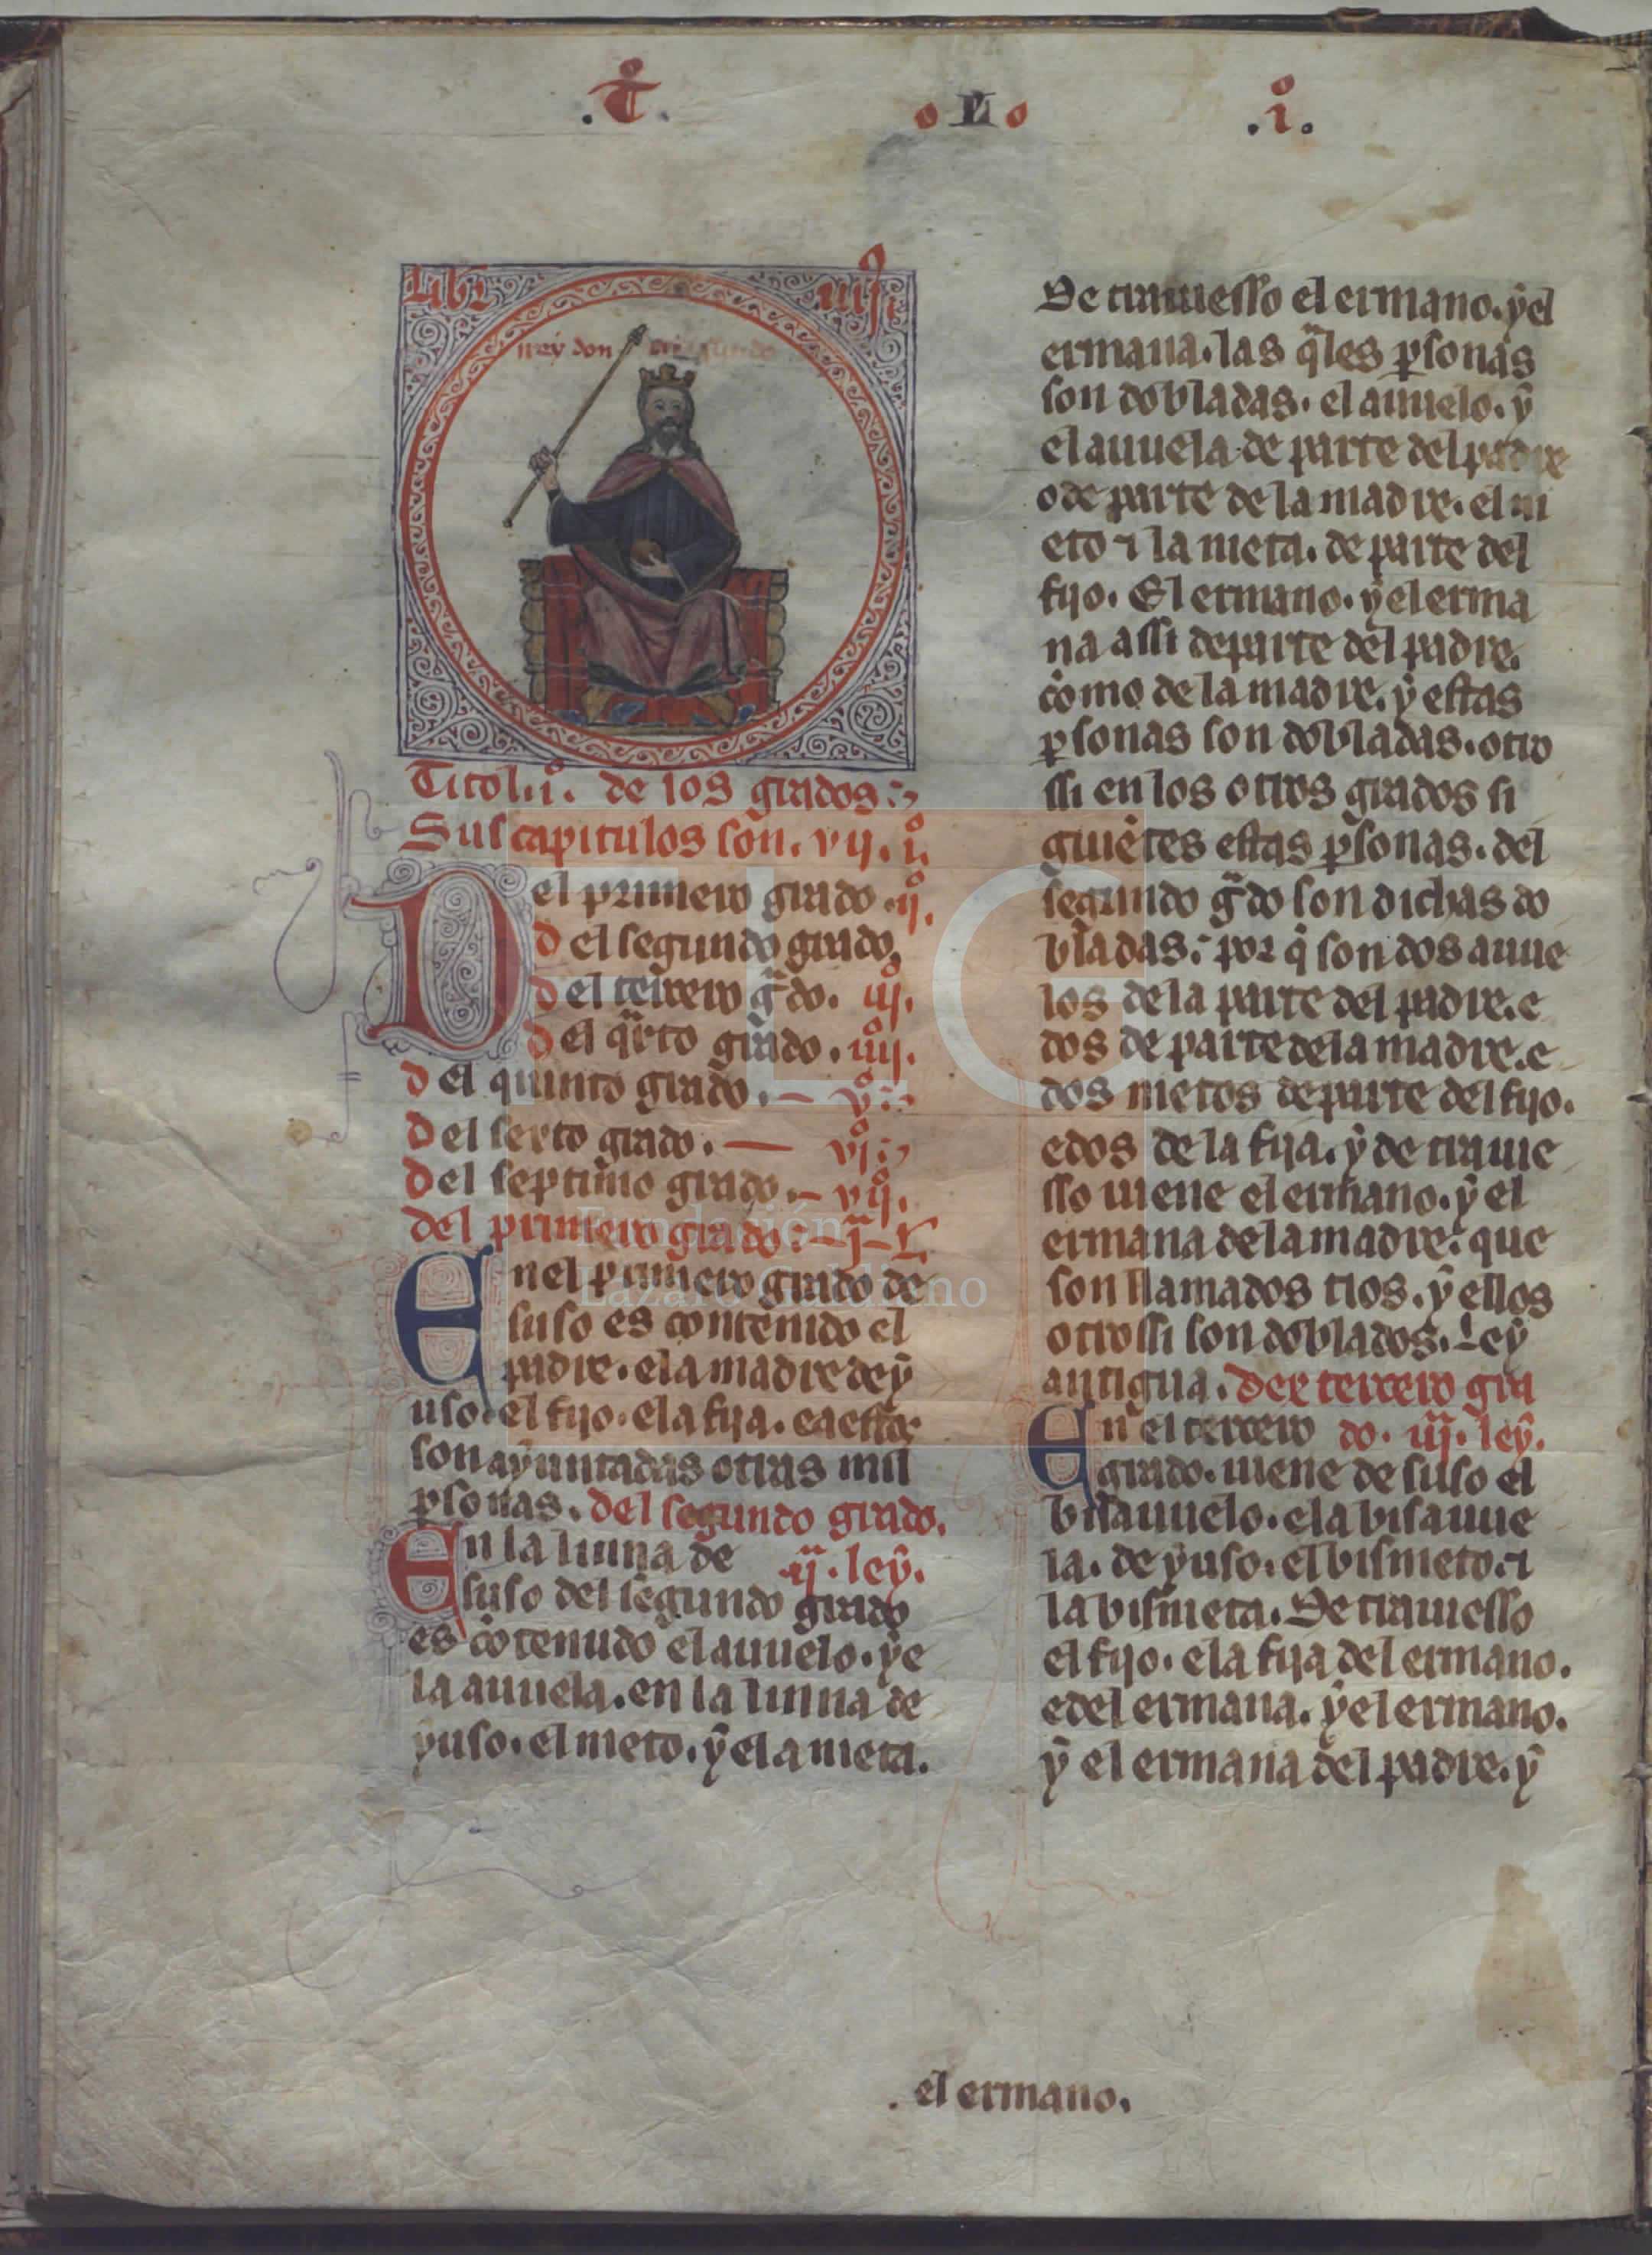 .t̊.
L
.i̊.
Libr
iiij
rey don
Titol. i. de los grados:
Sus capitulos son. vij. i.
Del primero grado. ij.
del segundo grado.
del tercero g̃do. iij.
del qrto grado. iiij.
del quinto grado. v
del sexto grado. vj
del septimo grado. vij.
del primero grado. j. L.
Enel primero grado de
suso es contenido el
padre. ela madre de ẏ
uso. el fijo. ela fija. ea esta
son ayuntadas otras mil
ꝑsonas. del segundo grado.
En la linna de ij. ley.
suso del segundo grado
es cõtenudo el auuelo. ẏ e
la auuela. en la linna de
yuso. el nieto. ẏ ela nieta.
De trauiesso el ermano. ẏ el
ermana. las q̃les ꝑsonas
son dobladas. el auuelo. ẏ
el auuela. de parte del padre
o de parte de la madre. el ni
eto ⁊ la nieta. de parte del
fijo. El ermano. ẏ el erma
na assi de parte del padre.
como de la madre. ẏ estas
ꝑsonas son dobladas. otro
ssi en los otros grados si
guiẽtes estas ꝑsonas. del
segundo g̃do son dichas do
bladas. por q̃ son dos auue
los de la parte del padre. e
dos de parte dela madre. e
dos nietos de parte del fijo.
e dos de la fija. ẏ de trauie
sso uiene el ermano. ẏ el
ermana dela madre. que
son llamados tios. ẏ ellos
otrossi son doblados. Ley
antigua. Del tercero gra
En el tercero do. iij. ley.
grado. uiene de suso el
bisauuelo. ela bisauue
la. de yuso. el bisnieto. ⁊
la bisnieta. De trauiesso
el fijo. ela fija del ermano.
edel ermana. ẏ el ermano.
ẏ el ermana del padre. ẏ
. el ermano.
FLG
Fundación
Lázaro Galdiano